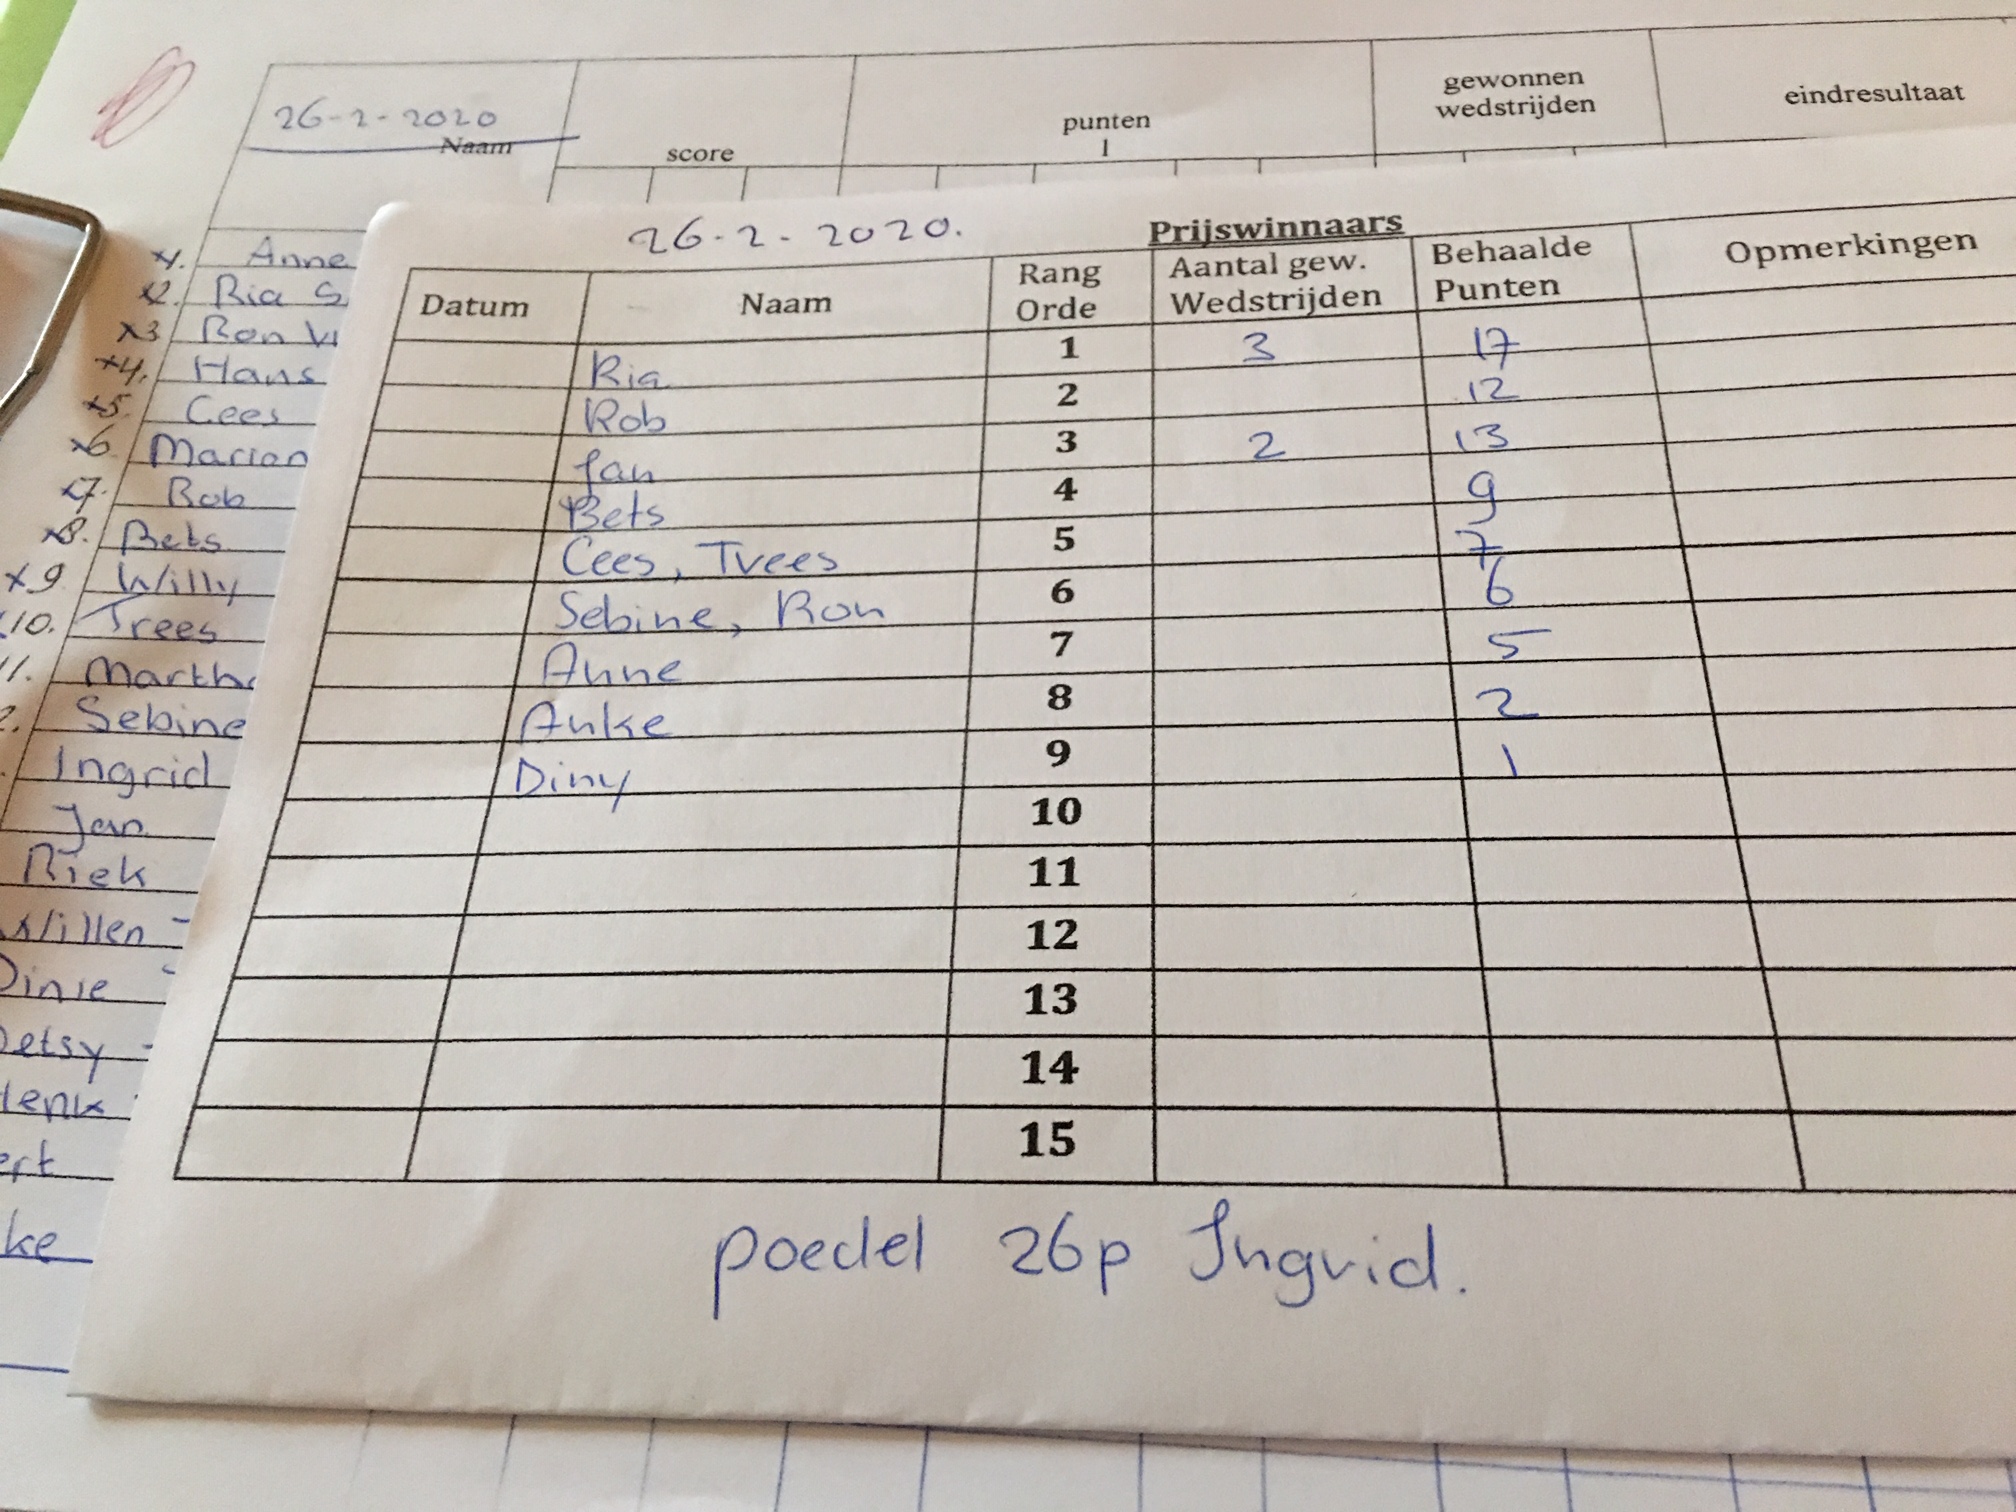 26-2-2020
Naam
score
punten
1
gewonnen
wedstrijden
eindresultaat
x1. Anne
x2. Ria S
x3 Ron
x4. Hans
x5. Cees
x6 Marion
x7. Rob
x8. Bets
x9 Willy
10. Trees
11. Marth
Sebine
Ingrid
Jan
Riek
Willen
Dinie
etsy
enk
ert
ke
26-2-2020.
Prijswinnaars
Datum Naam Rang Orde Aantal gew. Wedstrijden Behaalde Punten Opmerkingen
Ria 1 3 17
Rob 2 12
Jan 3 2 13
Bets 4 9
Cees, Trees 5 7
Sebine, Ron 6 6
Anne 7 5
Anke 8 2
Diny 9 1
10
11
12
13
14
15
poedel 26p Ingrid.